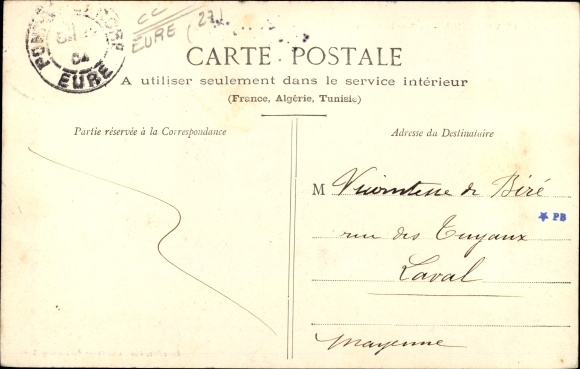 EURE
04
CC
EURE (27)
CARTE POSTALE
A utiliser seulement dans le service intérieur
(France, Algérie, Tunisie)
Partie réservée à la Correspondance
Adresse du Destinataire
M Vicomtesse de Biré
rue des Tuyaux
PB
Laval
Mayenne